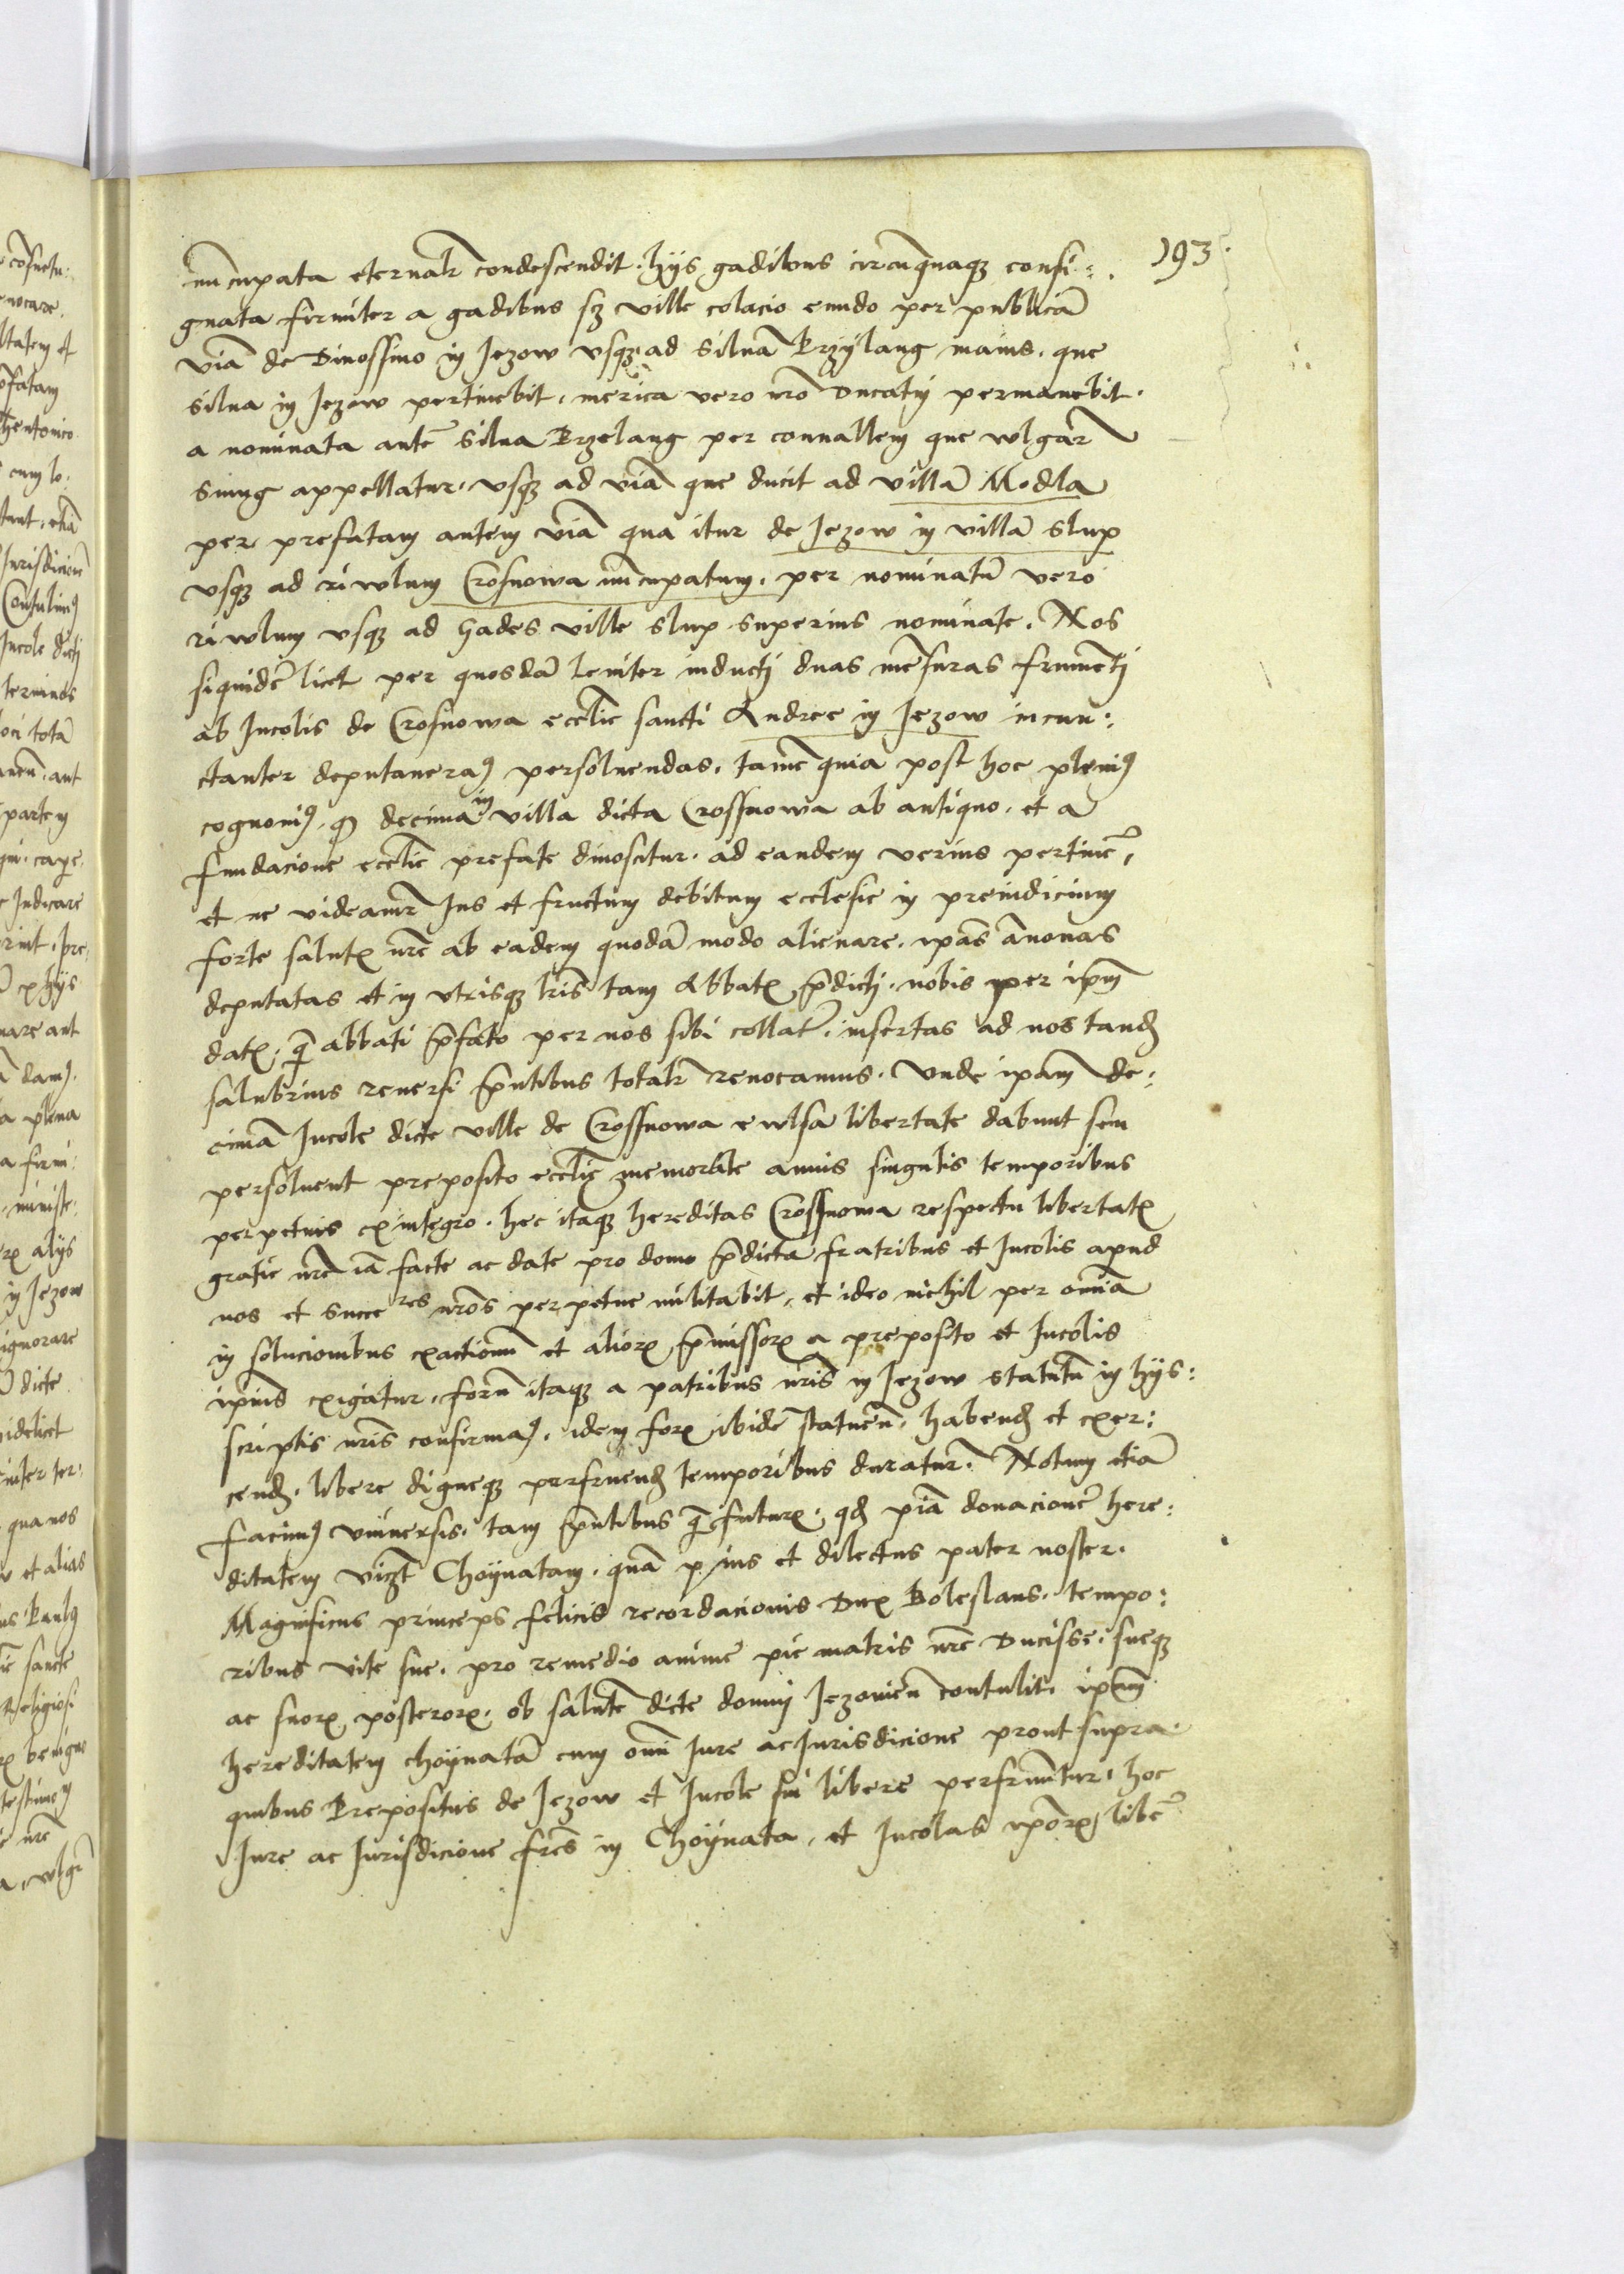 193.
nuncupata eternalr condescendit. hijs gadibus circuqnaqz consi:
gnata firmiter a gadibus sz ville colacio eundo per publicā
viā de Dinossino in Jezow vsqz ad siluā Przÿlang maius. que
silua in Jezow pertinebit. merica vero nro Ducatui permanebit.
a nominata autē silua Przelang per conuallem que wlgar
smug appellatur. vsqz ad viā que ducit ad villā Modla
per prefatam autem viā qua itur de Jezow in villā slup
vsqz ad riwlum Crosnowa nūcupatum. per nominatū vero
riwlum vsqz ad Gades ville slup superius nominate. Nos
siquidē licet per quosdā leuiter inducti duas mēsuras frumēti
ab Incolis de Crosnowa ecclie sancti Andree in Jezow incun:
ctanter deputaueraꝰ persoluendas. tamē quia post hoc pleniꝰ
cognouiꝰ. ꝙ decima in villa dicta Crossnowa ab antiquo. et a
fundacione ecclie prefate dinoscitur. ad eandem verius pertinē.
et ne videamr Ius et fructum debitum ecclesie in preiudicium
forte salutꝭ nrē ab eadem quodā modo alienare. ipās ānonas
deputatas et in vtrisqz lris tam Abbatꝭ p̄dicti. nobis per ip̄m
datꝭ. q̄ abbati p̄fato per nos sibi collatꝭ. insertas ad nos tandꝫ
salubrius reuersi p̄ntibus totalr reuocamus. Vnde ipam de:
cimā Incole dicte ville de Crossnowa ewlsa libertate dabunt seu
persoluent preposito ecclie memorate annis singulis temporibus
perpetuis ex integro. hec itaqz hereditas Crossnowa respectu libertatꝭ
gratie nrē iā facte ac date pro domo p̄dicta fratribus et Incolis apud
nos et succeres nros perpetue militabit. et ideo nichil per omnia
in solucionibus exactionum et aliorꝝ p̄missorꝝ a preposito et Incolis
ipius exigatur. forū itaqz a patribus nris in Jezow statutū in hijs:
scriptis nris confirmaꝰ. idem forꝝ ibidē statuēn. habendꝫ et exer:
cendꝫ. libere digneqz perfruendꝫ temporibus duratur. Notum etiā
facimꝰ vniuersis. tam p̄ntibus q̄ futurꝭ. qdꝫ piā donacionē here:
ditatem vidzt Choÿnatam. quā pius et dilectus pater noster.
Magnificus princeps felicis recordacionis Dux Boleslaus. tempo:
ribus vite sue. pro remedio anime pie matris nrē Ducisse. sueqz
ac suorꝝ posterorꝝ. ob salutē dicte domui Jezouien contulit. ipam
hereditatem choÿnatā cum omni Iure ac Iurisdicione prout supra.
quibus Prepositus de Jezow et Incole sui libere perfruūtur. hoc
Iure ac Iurisdicione frēs in Choÿnata. et Incolas ipōrꝝ libē